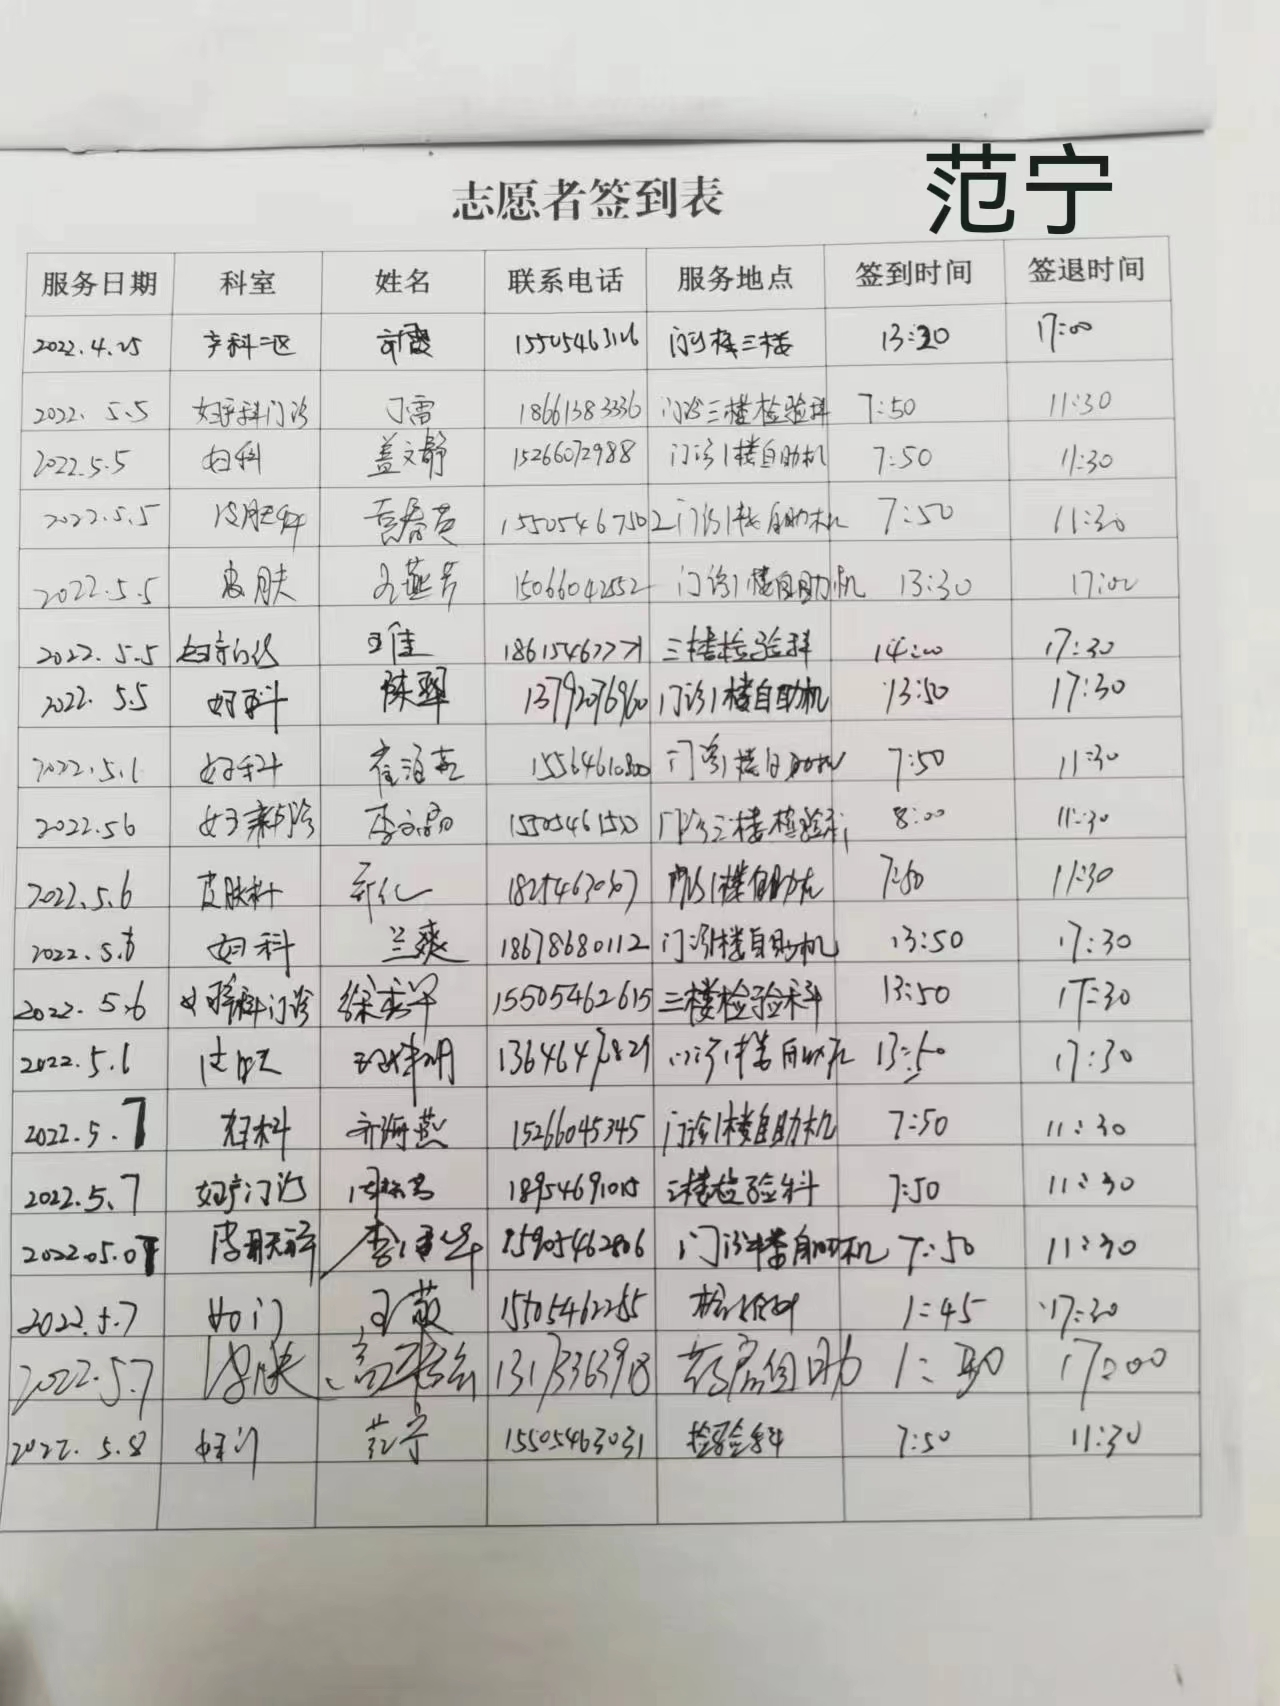 范宁
志愿者签到表
服务日期 科室 姓名 联系电话 服务地点 签到时间 签退时间
2022.4.25 产科二区 15505463126 门诊楼三楼 13:20 17:00
2022.5.5 妇产科门诊 丁雷 18661383336 门诊三楼检验科 7:50 11:30
2022.5.5 妇科 盖文静 15266072988 门诊1楼自助机 7:50 11:30
2022.5.5 皮肤科 15505467502 门诊1楼自助机 7:50 11:30
2022.5.5 皮肤 15066042552 门诊1楼自助机 13:30 17:00
2022.5.5 王佳 18615467771 三楼检验科 14:00 17:30
2022.5.5 妇科 陈翠 13792076960 门诊1楼自助机 13:50 17:30
2022.5.6 妇科 门诊1楼自助机 7:50 11:30
2022.5.6 门诊三楼检验科 8:00 11:30
2022.5.6 皮肤科 门诊1楼自助机 7:50 11:30
2022.5.6 妇科 兰爽 18678680112 门诊1楼自助机 13:50 17:30
2022.5.6 妇产科门诊 15505462615 三楼检验科 13:50 17:30
2022.5.6 皮肤 门诊1楼自助机 13:50 17:30
2022.5.7 妇科 齐海燕 15266045345 门诊1楼自助机 7:50 11:30
2022.5.7 妇产门诊 18954691015 三楼检验科 7:50 11:30
2022.05.07 皮肤科 15905462806 门诊楼自助机 7:50 11:30
2022.5.7 妇门 王敬 15505462255 检验科 1:45 17:30
2022.5.7 皮肤 13173363918 药房自助 1:30 17:00
2022.5.8 妇门 范宁 15505463031 检验科 7:50 11:30